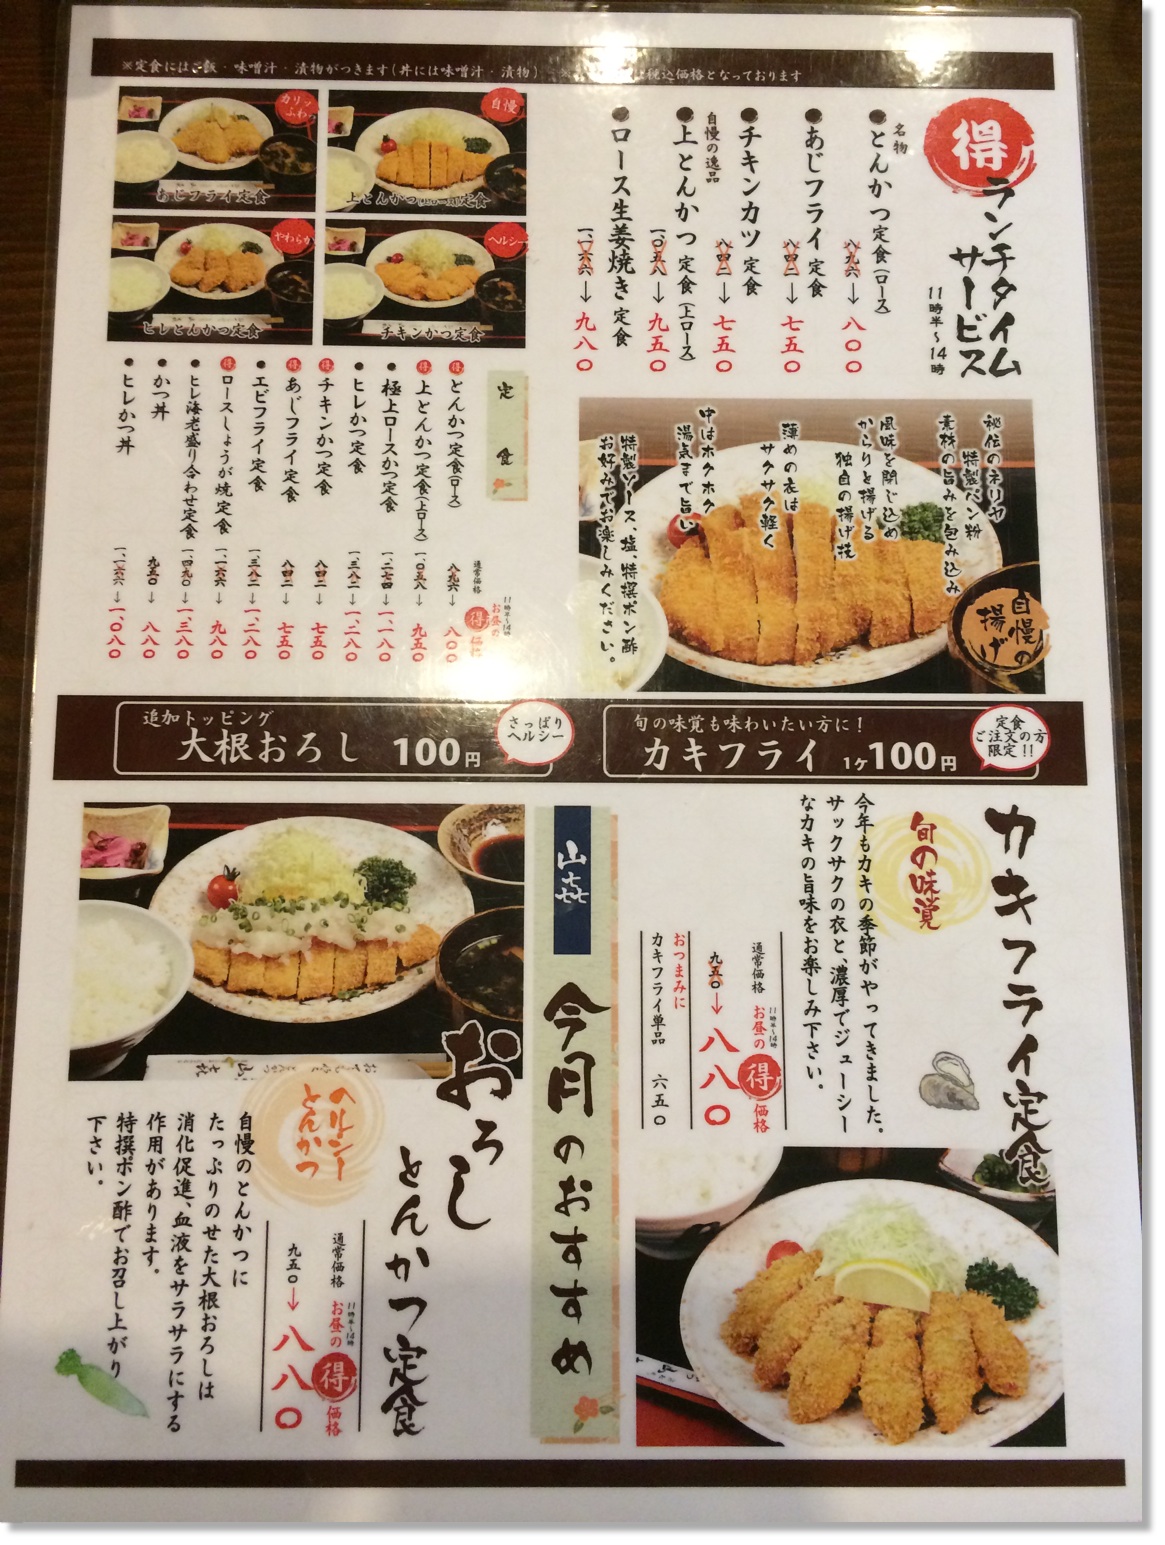 ※定食にはご飯・味噌汁・漬物がつきます(丼には味噌汁・漬物)
税込価格となっております
得
ランチタイム
サービス
11時半〜14時
名物
●とんかつ定食(ロース)
八九六→八〇〇
●あじフライ定食
八四二→七五〇
●チキンカツ定食
八四二→七五〇
自慢の逸品
●上とんかつ定食(上ロース)
一、〇五八→九五〇
●ロース生姜焼き定食
一、一六六→九八〇
カリッ
ふわっ
あじフライ定食
自慢
上とんかつ定食
やわらか
ヒレとんかつ定食
ヘルシー
チキンかつ定食
定食
通常価格
11時半〜14時
お昼の得価格
得とんかつ定食(ロース)
八九六→八〇〇
得上とんかつ定食(上ロース)
一、〇五八→九五〇
●極上ロースかつ定食
一、二七四→一、一八〇
●ヒレかつ定食
一、三八二→一、二八〇
得チキンかつ定食
八四二→七五〇
得あじフライ定食
八四二→七五〇
●エビフライ定食
一、三八二→一、二八〇
得ロースしょうが焼定食
一、一六六→九八〇
●ヒレ海老盛り合わせ定食
一、四九〇→一、三八〇
●かつ丼
九五〇→八八〇
●ヒレかつ丼
一、一六六→一、〇八〇
秘伝のネリヤ
特製パン粉
素材の旨みを包み込み
風味を閉じ込め
からりと揚げる
独自の揚げ技
薄めの衣は
サクサク軽く
中はホクホク
湯気まで旨い
特製ソース、塩、特撰ポン酢
お好みでお楽しみください。
自慢の
揚げ
追加トッピング
大根おろし 100円
さっぱり
ヘルシー
旬の味覚も味わいたい方に!
カキフライ 1ヶ100円
定食
ご注文の方
限定!!
カキフライ定食
旬の味覚
今年もカキの季節がやってきました。
サックサクの衣と、濃厚でジューシー
なカキの旨味をお楽しみ下さい。
通常価格
11時半〜14時
お昼の得価格
九五〇→八八〇
おつまみに
カキフライ単品 六五〇
山㐂
今月のおすすめ
おろし
とんかつ定食
ヘルシー
とんかつ
通常価格
11時半〜14時
お昼の得価格
九五〇→八八〇
自慢のとんかつに
たっぷりのせた大根おろしは
消化促進、血液をサラサラにする
作用があります。
特撰ポン酢でお召し上がり
下さい。